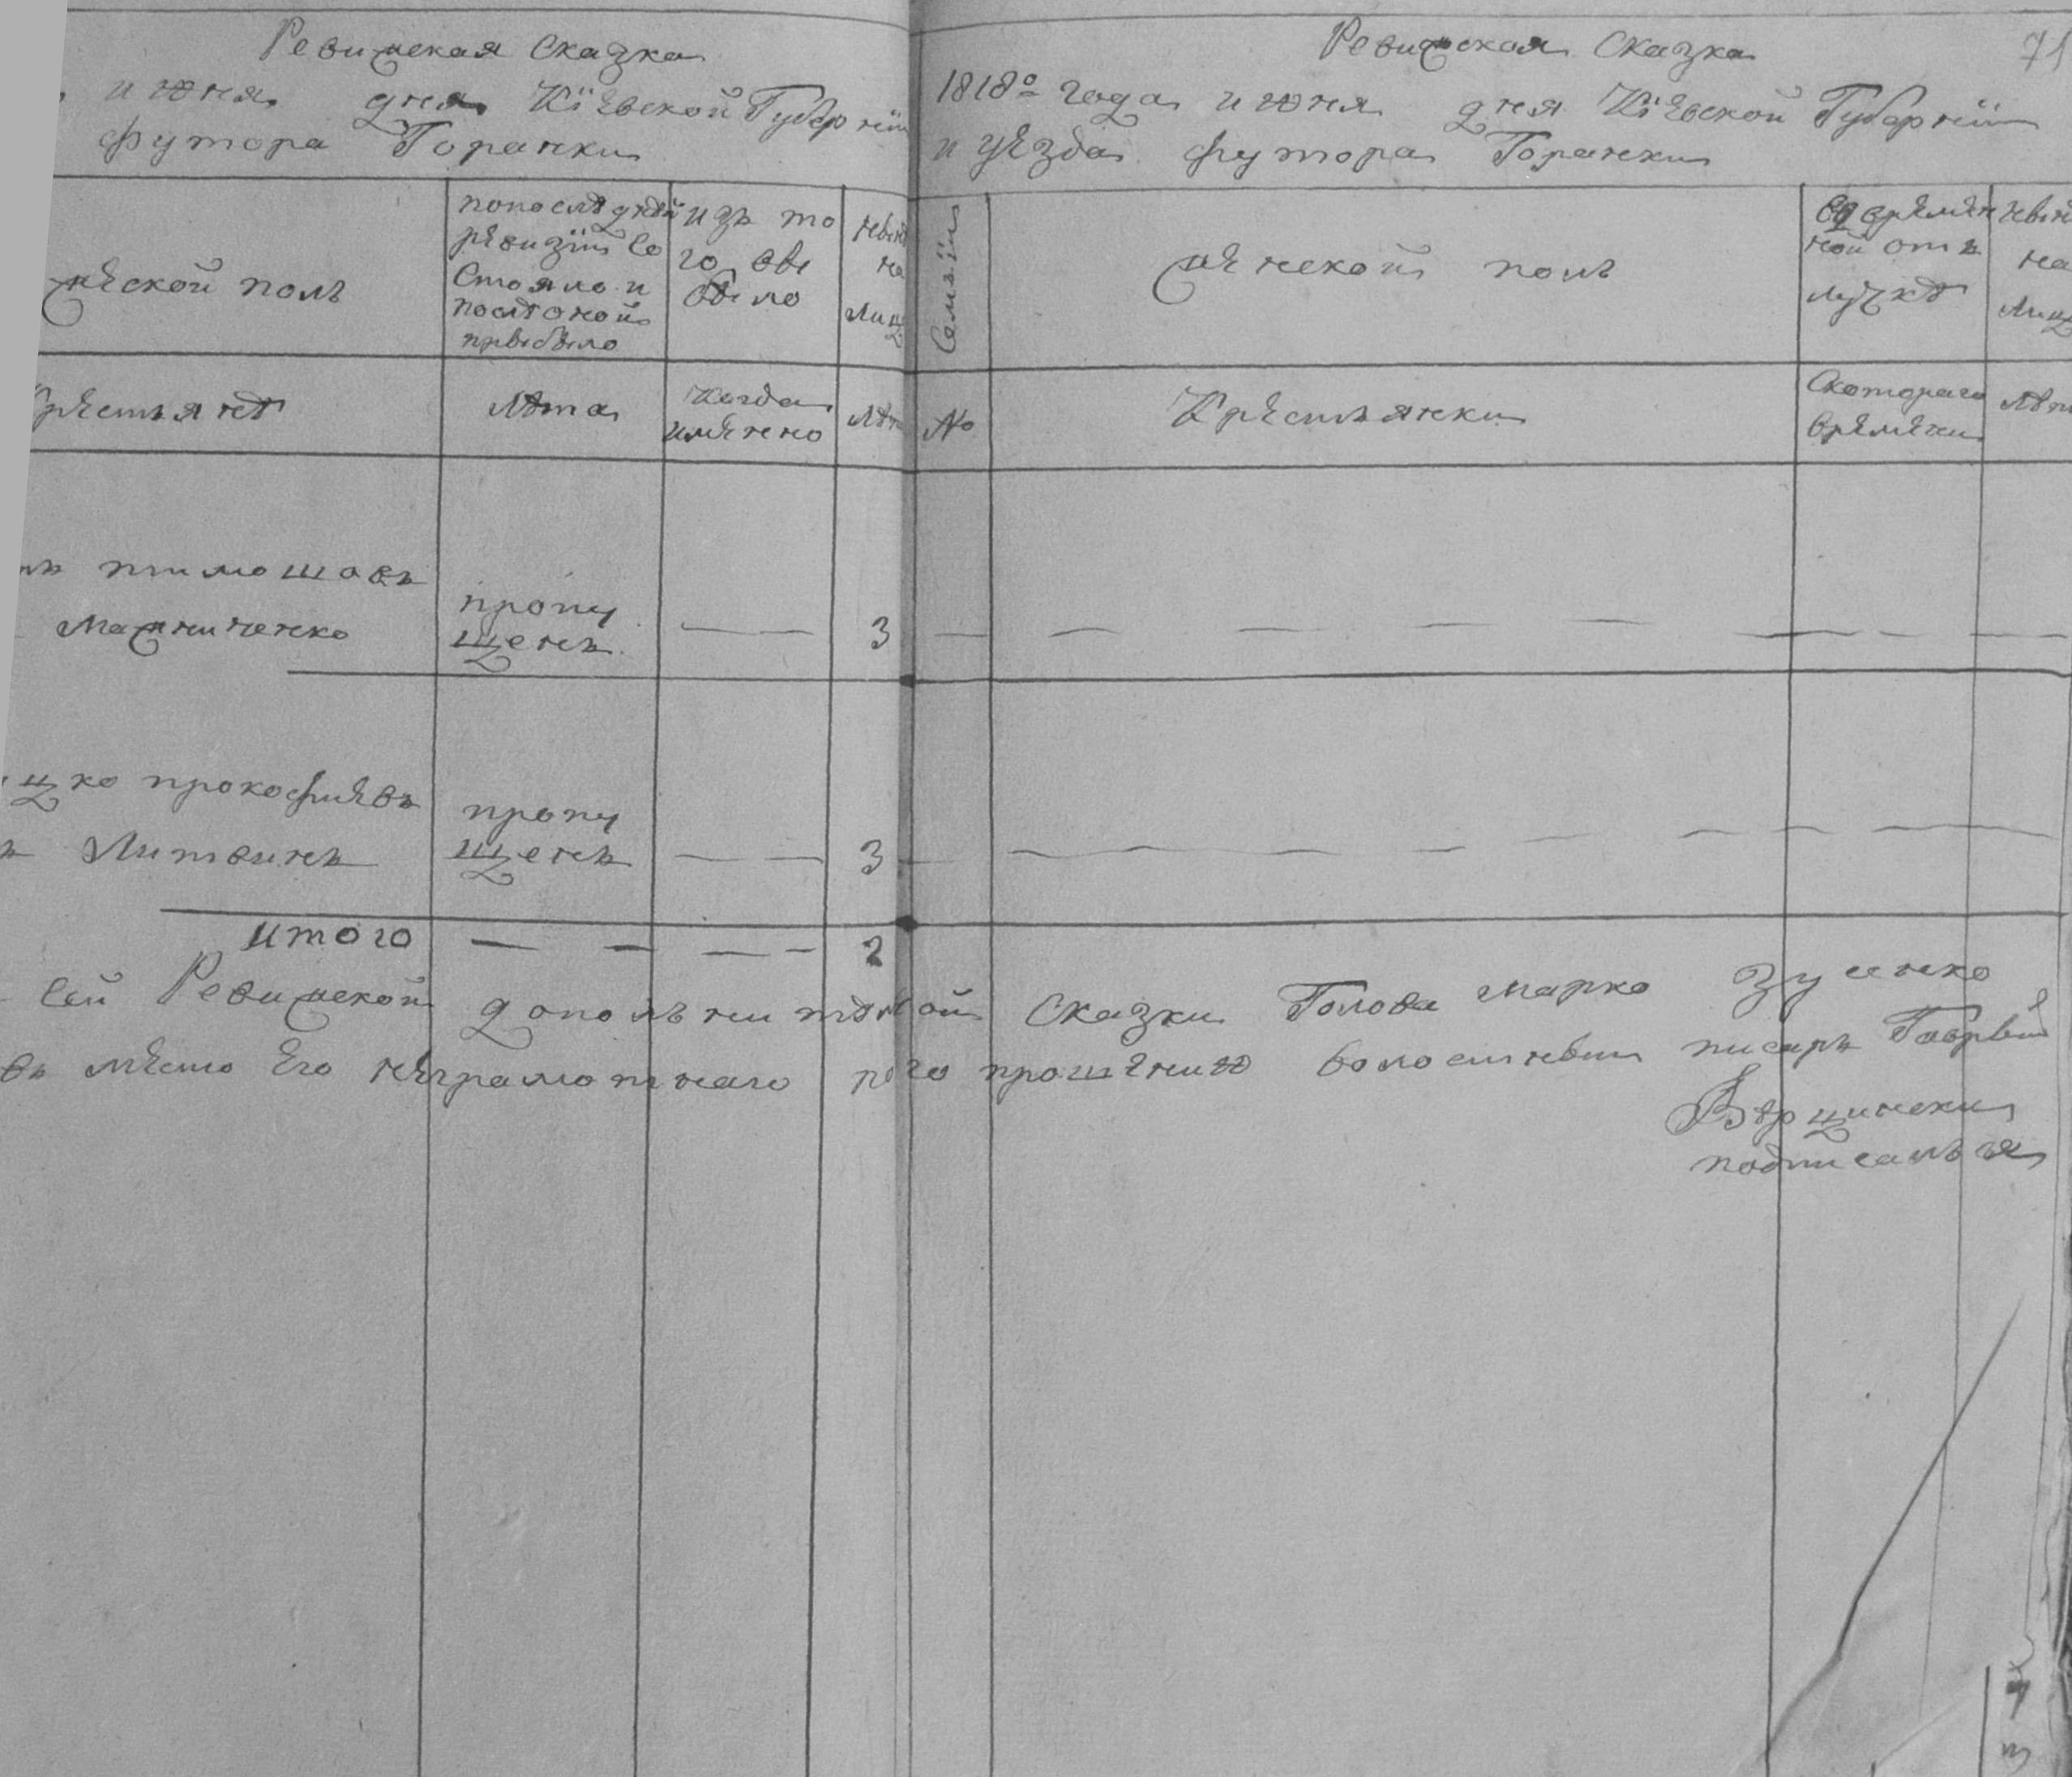 Ревижская Сказка
июня дня Кіевской Губерніи
футора Горенки
мужеской полъ
попослѣдней ревизіи со стояло и послѣ оной прибыло
изъ то го вы было
нынѣ на лицо
крестьяне
лѣта
Когда имянно
лѣта
тимошовъ
Мажниченко
пропу
щенъ
3
цко прокофіевъ
Литвинъ
пропу
щенъ
3
итого
2
71
Ревижская Сказка
1818го года июня дня Кіевской Губерніи
и уезда футора Горенки
Семьи
женской полъ
во времян ной отъ лучкѣ
нынѣ на лицо
№
Крестьянки
Скотораго времяни
лѣта
сей Ревижской дополънителной Сказки Голова Марко Зуенко
въ место Его неграмотнаго по его прошению волостный писаръ Гаврыл
Вѣрцински
подписалъся